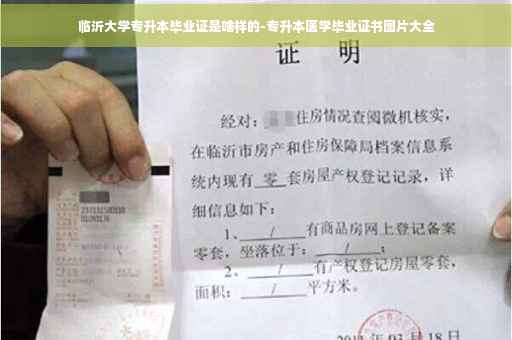 临沂大学专升本毕业证是啥样的-专升本医学毕业证书图片大全
证 明
经对：住房情况查阅微机核实，
在临沂市房产和住房保障局档案信息系
统内现有 零 套房屋产权登记记录，详
细信息如下：
1、 / 有商品房网上登记备案
零套，坐落位于： / ；
2、 / 有产权登记房屋零套，
面积： / 平方米。
03月18日